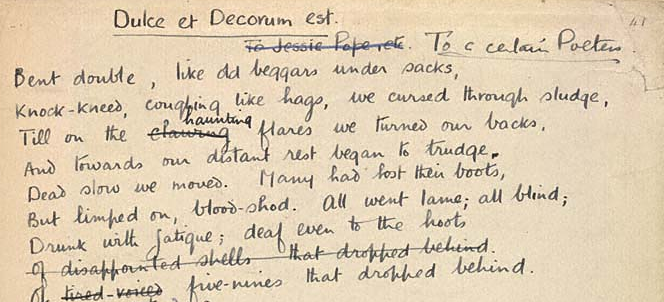 41
Dulce et Decorum est.
To Jessie Pope etc. To a certain Poetess.
Bent double, like old beggars under sacks,
Knock-kneed, coughing like hags, we cursed through sludge,
haunting
Till on the clawing flares we turned our backs,
And towards our distant rest began to trudge.
Dead slow we moved. Many had lost their boots,
But limped on, blood-shod. All went lame; all blind;
Drunk with fatigue; deaf even to the hoots
Of disappointed shells that dropped behind.
Of tired-voiced five-nines that dropped behind.